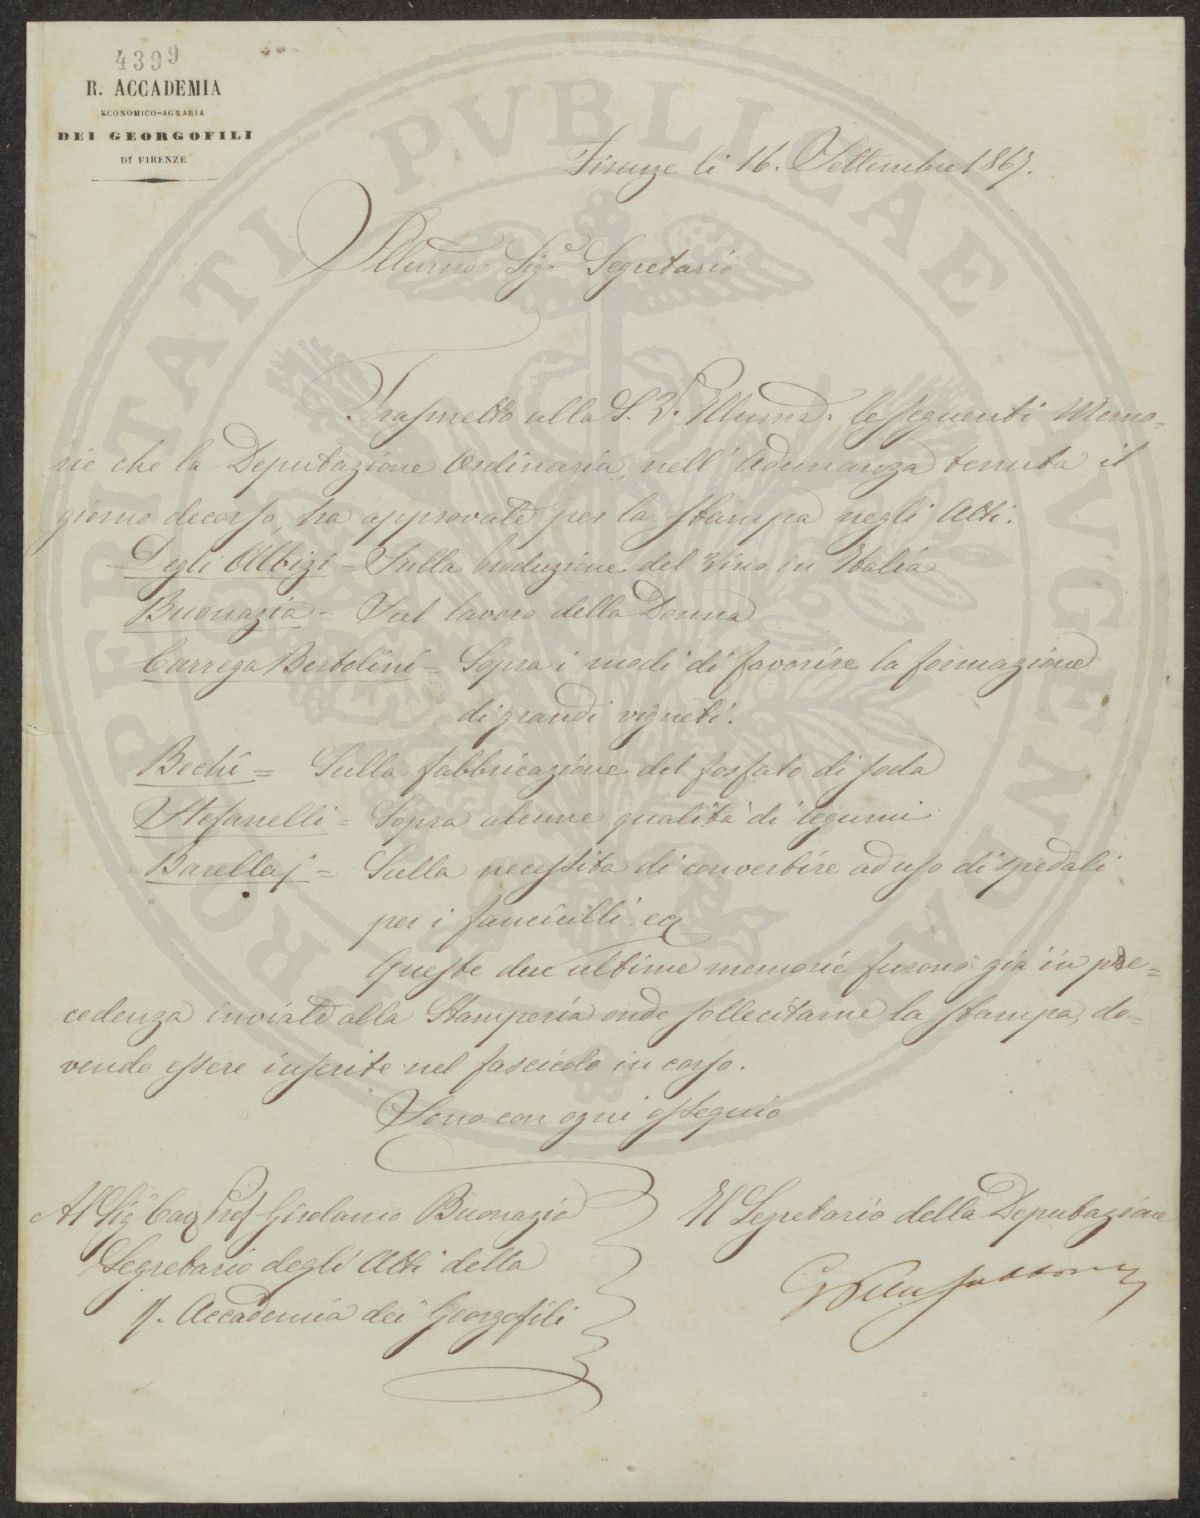 4399
R. ACCADEMIA
ECONOMICO-AGRARIA
DEI GEORGOFILI
DI FIRENZE
PROSPERITATI PUBLICAE AUGENDAE
Firenze li 16. Settembre 1867.
Illumo. Sigr. Segretario
Trasmetto alla S. V. Illuma. le seguenti Memo=
rie che la Deputazione Ordinaria, nell' Adunanza tenuta il
giorno decorso, ha approvate per la stampa negli Atti.
Degli Albizi = Sulla produzione del Vino in Italia
Buonazia = Sul lavoro della Donna
Carrega Bertolini = Sopra i modi di favorire la formazione
di grandi vigneti.
Bechi = Sulla fabbricazione del fosfato di soda
Stefanelli = Sopra alcune qualità di legumi
Barellaj = Sulla necessità di convertire ad uso di spedali
per i fanciulli ec
Queste due ultime memorie furono già in pre=
cedenza inviate alla Stamperia onde sollecitarne la stampa, do=
vendo essere inserite nel fascicolo in corso.
Sono con ogni ossequio
Al Sigr Cav Prof Girolamo Buonazia
Segretario degli Atti della
R. Accademia dei Georgofili
Il Segretario della Deputazione